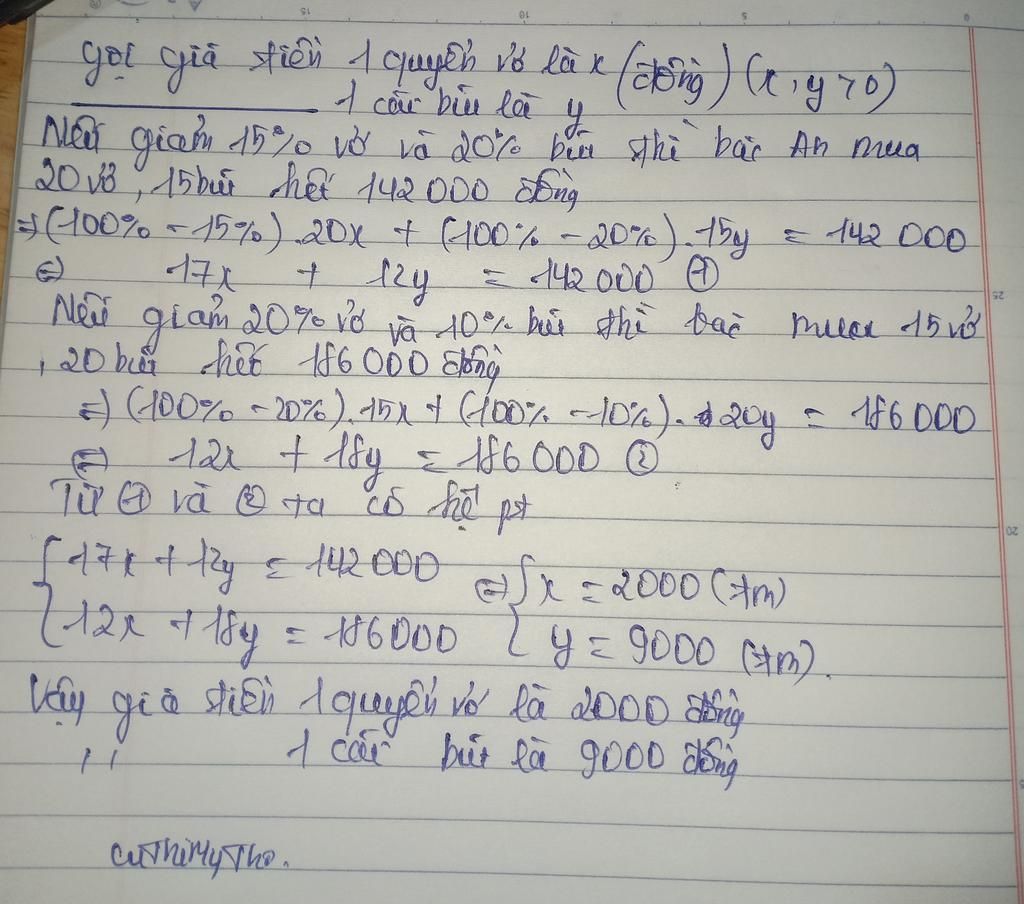 Gọi giá tiền 1 quyển vở là x (đồng) (x, y > 0)
1 cái bút là y
Nếu giảm 15% vở và 20% bút thì bác An mua
20 vở, 15 bút hết 142 000 đồng
=> (100% - 15%).20x + (100% - 20%).15y = 142 000
<=> 17x + 12y = 142 000 ①
Nếu giảm 20% vở và 10% bút thì bác mua 15 vở
, 20 bút hết 186 000 đồng
=> (100% - 20%).15x + (100% - 10%).20y = 186 000
<=> 12x + 18y = 186 000 ②
Từ ① và ② ta có hệ pt
{ 17x + 12y = 142 000 <=> { x = 2000 (tm)
{ 12x + 18y = 186000 { y = 9000 (tm).
Vậy giá tiền 1 quyển vở là 2000 đồng
,, 1 cái bút là 9000 đồng
CuThiMyTho.